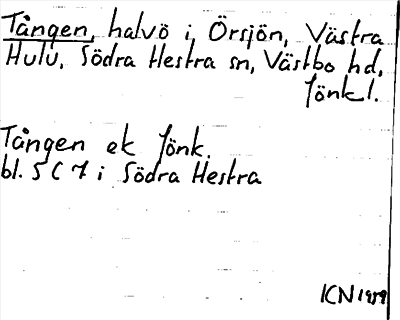 Tången, halvö i, Örsjön, Västra
Hulu, Södra Hestra sn, Västbo hd,
Jönk l.
Tången ek Jönk.
bl. 5 C 7 i Södra Hestra
KN 1959